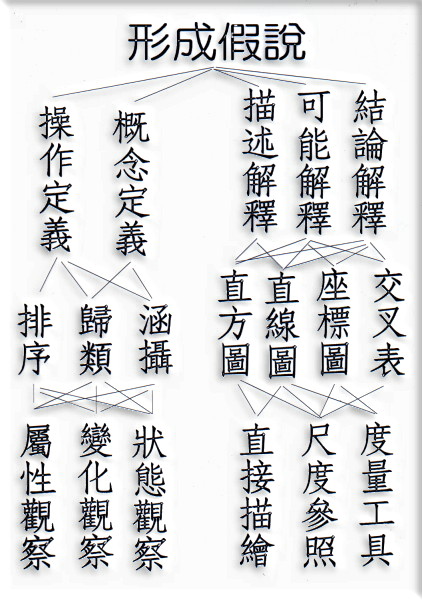 形成假說
操作定義
概念定義
描述解釋
可能解釋
結論解釋
排序
歸類
涵攝
直方圖
直線圖
座標圖
交叉表
屬性觀察
變化觀察
狀態觀察
直接描繪
尺度參照
度量工具